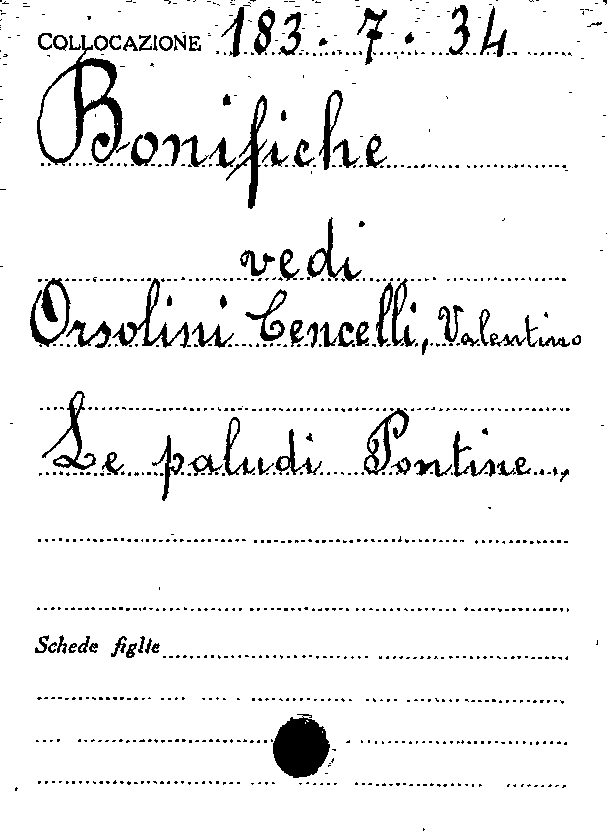 COLLOCAZIONE 183.7.34
Bonifiche
vedi
Orsolini Cencelli, Valentino
Le paludi Pontine...,
Schede figlie